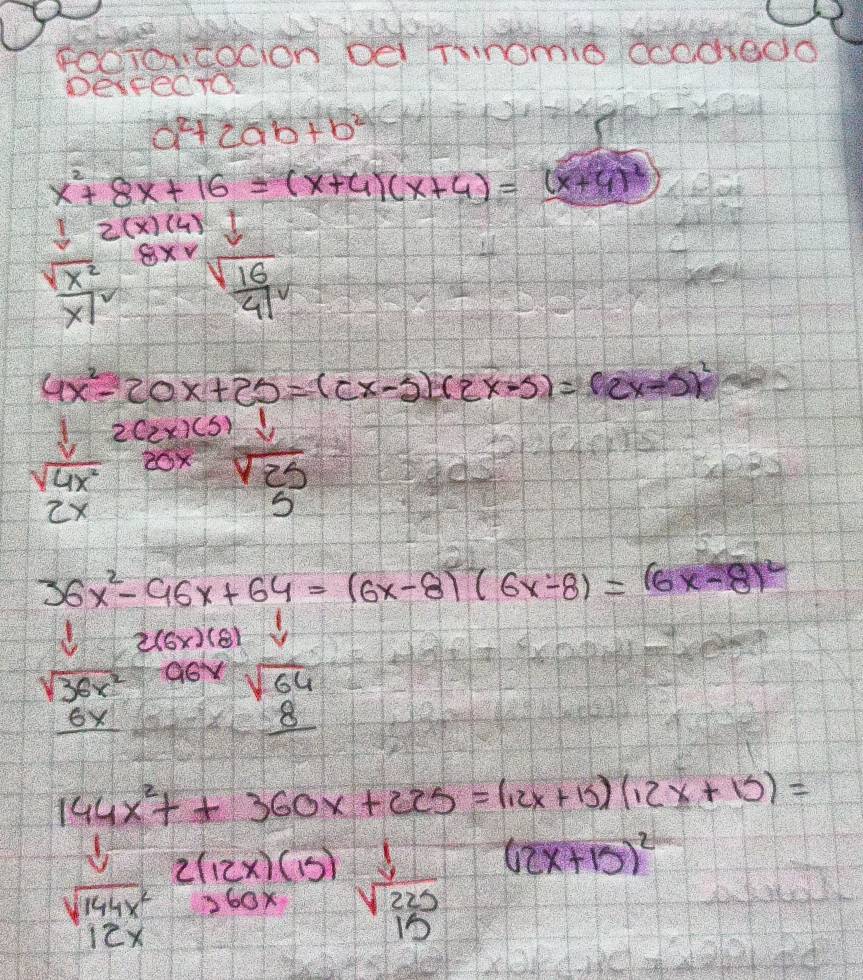 Factorización Del Trinomio cuadrado
perfecto.
a²+2ab+b²
x²+8x+16=(x+4)(x+4)=(x+4)²
↓ 2(x)(4) ↓
8x✓
√x² √16
x|✓ 4|✓
4x²-20x+25=(2x-5)(2x-5)=(2x-5)²
↓ 2(2x)(5) ↓
√4x² 20x √25
2x 5
36x²-96x+64=(6x-8)(6x-8)=(6x-8)²
↓ 2(6x)(8) ↓
√36x² 96x √64
6x 8
144x²++360x+225=(12x+15)(12x+15)=
↓ 2(12x)(15) ↓ (12x+15)²
√144x² 360x √225
12x 15